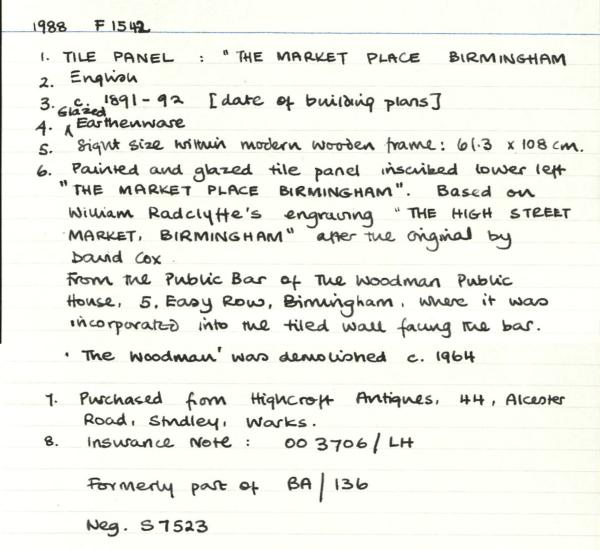 1988 F 1542
1. TILE PANEL : "THE MARKET PLACE BIRMINGHAM
2. English
3. c. 1891-92 [date of building plans]
4. Glazed Earthenware
5. Sight size within modern wooden frame: 61.3 x 108 cm.
6. Painted and glazed tile panel inscribed lower left
"THE MARKET PLACE BIRMINGHAM". Based on
William Radclyffe's engraving "THE HIGH STREET
MARKET, BIRMINGHAM" after the original by
David Cox
From the Public Bar of The Woodman Public
House, 5, Easy Row, Birmingham, where it was
incorporated into the tiled wall facing the bar.
'The Woodman' was demolished c. 1964
7. Purchased from Highcroft Antiques, 44, Alcester
Road, Studley, Warks.
8. Insurance Note : 003706/LH
Formerly part of BA/136
Neg. S7523